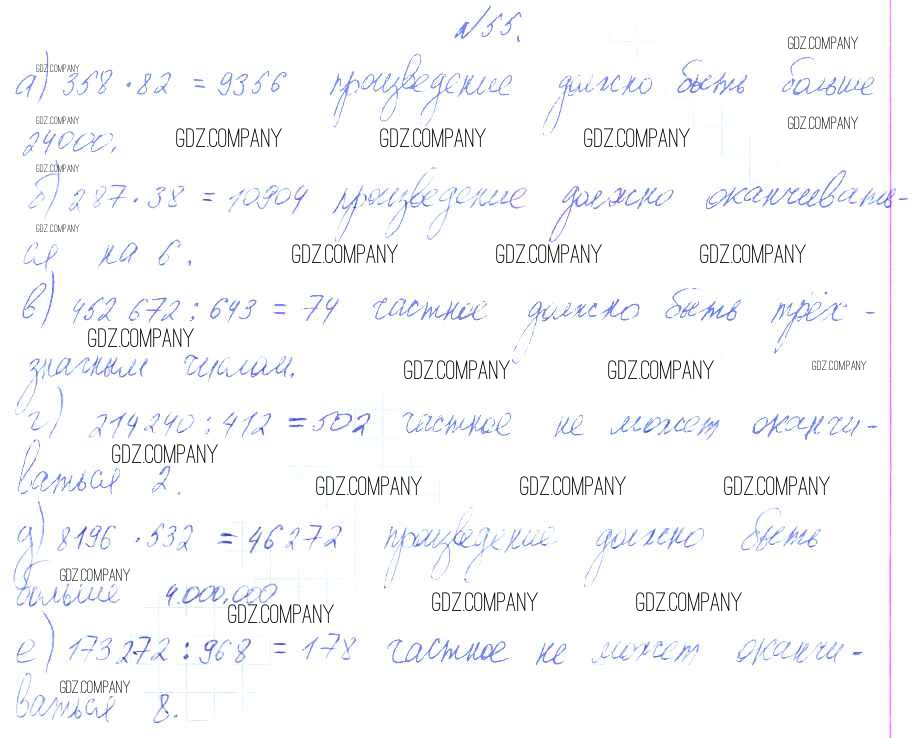 №55.
а) 358 · 82 = 9356 произведение должно быть больше
24000.
б) 287 · 38 = 10904 произведение должно оканчивать-
ся на 6.
в) 452 672 : 643 = 74 частное должно быть трёх-
значным числом.
г) 214240 : 412 = 502 частное не может оканчи-
ваться 2.
д) 8196 · 532 = 46272 произведение должно быть
больше 4.000.000
е) 173272 : 968 = 178 частное не может оканчи-
ваться 8.
GDZ.COMPANY
GDZ.COMPANY
GDZ.COMPANY
GDZ.COMPANY
GDZ.COMPANY GDZ.COMPANY GDZ.COMPANY
GDZ.COMPANY
GDZ.COMPANY
GDZ.COMPANY GDZ.COMPANY GDZ.COMPANY
GDZ.COMPANY
GDZ.COMPANY GDZ.COMPANY GDZ.COMPANY
GDZ.COMPANY
GDZ.COMPANY GDZ.COMPANY GDZ.COMPANY
GDZ.COMPANY
GDZ.COMPANY GDZ.COMPANY GDZ.COMPANY
GDZ.COMPANY